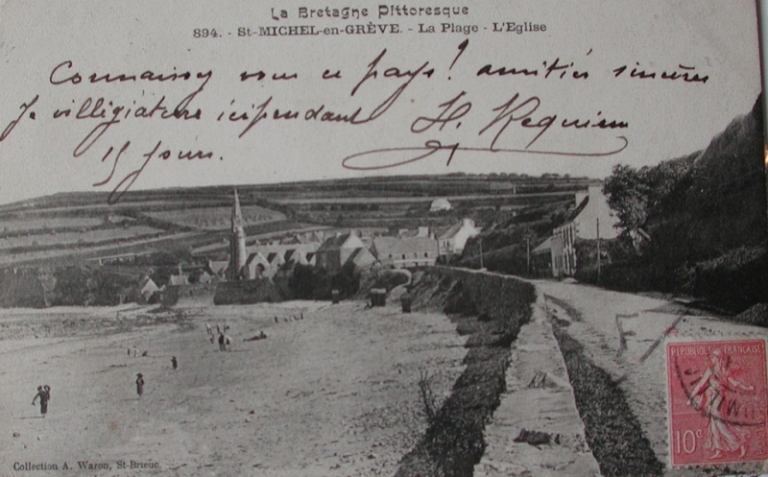 La Bretagne Pittoresque
894. - St-MICHEL-en-GRÈVE. - La Plage - L'Eglise
Connaissez vous ce pays! amitiés sincères
Je villégiature ici pendant H. Requiem
15 jours.
RÉPUBLIQUE FRANÇAISE
10c
Collection A. Waron, St-Brieuc